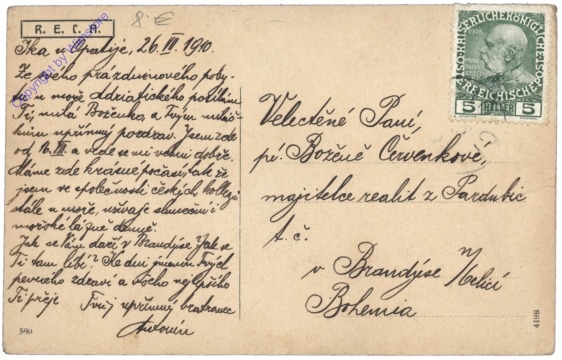 8 €
R. E. C. A.
Copyright by Vintstore
Ika u Opatije, 26. III. 1910.
Ze svého prázdninového poby-
tu u moře adriatického posílám
Ti, milá Boženko, a Tvým
upřímný pozdrav. Jsem zde
od 16. III a vede se mi velmi dobře.
Máme zde krásné počasí, tak že
jsem ve společnosti českých kollegů
stále u moře, užívaje sluneční i
mořské lázně denně.
Jak se Vám daří v Brandýse? Jak se
Ti tam líbí? Ke dni jmenin Tvých
pevného zdraví a všeho nejlepšího
Ti přeje
Tvůj upřímný bratranec
Antonín
5411
KAISERLICHE KÖNIGLICHE
ÖSTERREICHISCHE POST
1848 1908
5 HELLER 5
Velectěné Paní,
pí. Boženě Červenkové,
majitelce realit z Pardubic
t. č.
v Brandýse n/Orlicí
Bohemia
4198